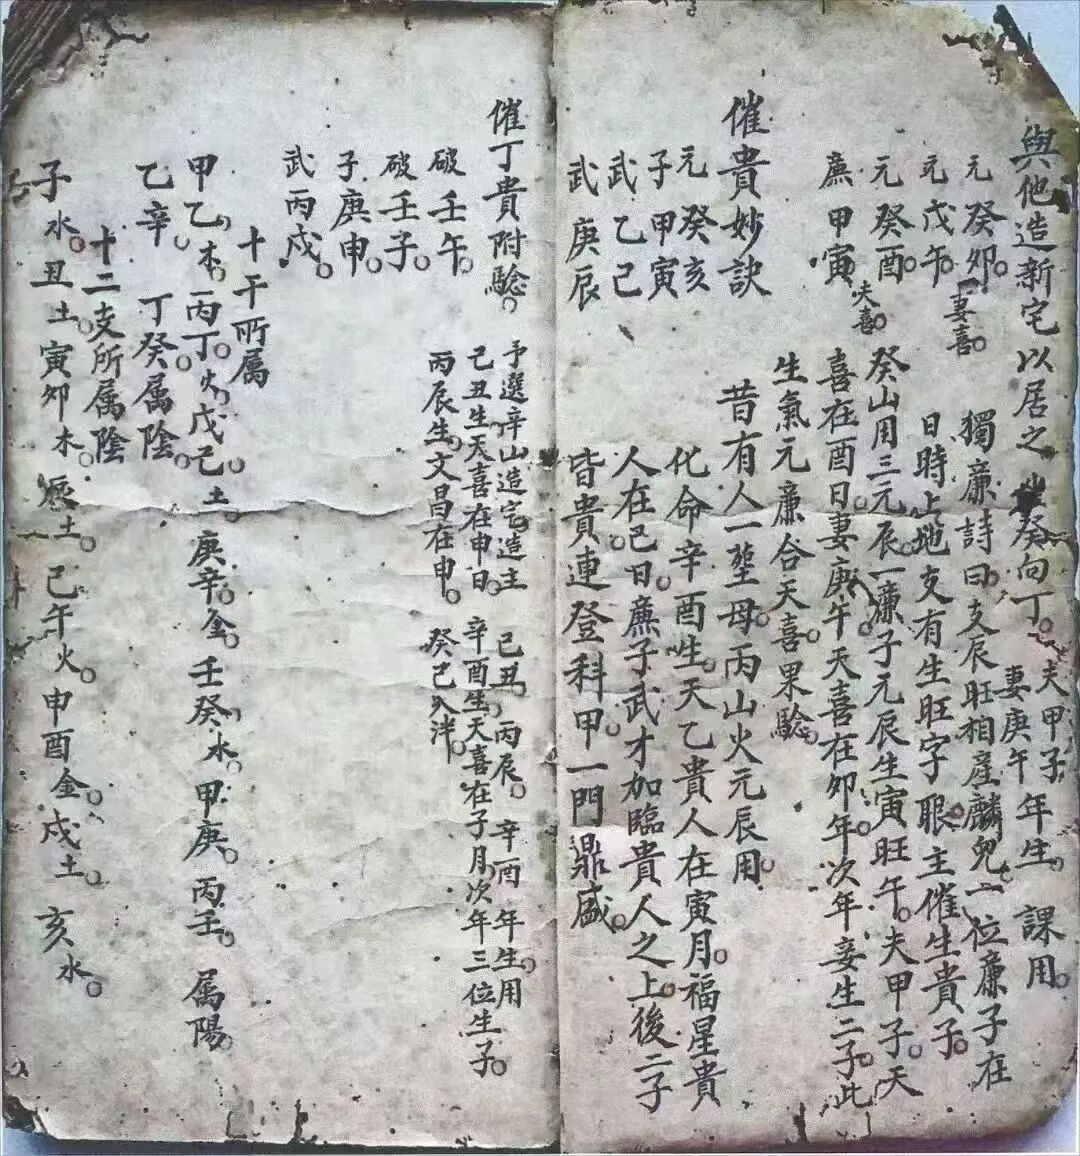 與他造新宅以居之坐癸向丁。夫甲子妻庚午年生。課用。
元癸卯。妻喜。獨廉詩曰支辰旺相産麟兒一位廉子在
元戊午。日時上地支有生旺字眼。主催生貴子。
元癸酉。癸山用三元辰。一廉子元辰生寅旺午。夫甲子。天
廉甲寅夫喜。喜在酉日。妻庚午。天喜在卯年。次年妾生二子。此
生氣元廉合天喜。果驗。
催貴妙訣 昔有人一塋母。丙山火元辰用。
元癸亥 化命辛酉生。天乙貴人在寅月。福星貴
子甲寅 人在巳日。廉子武才加臨貴人之上。後二子
武乙己 皆貴連登科甲一門鼎盛。
武庚辰
催丁貴附驗。予選辛山造宅。造主己丑。丙辰。辛酉年生。用
破壬午。己丑生天喜在申日。辛酉生天喜在子月。次年三位生子。
破壬子。丙辰生。文昌在申。癸己入泮。
子庚申。
武丙戌。
十干所属
甲乙木。丙丁火。戊己土。庚辛金。壬癸水。甲庚。丙壬。属陽。
乙辛。丁癸属陰。
十二支所属陰
子水。丑土。寅卯木。辰土。己午火。申酉金。戌土。亥水。